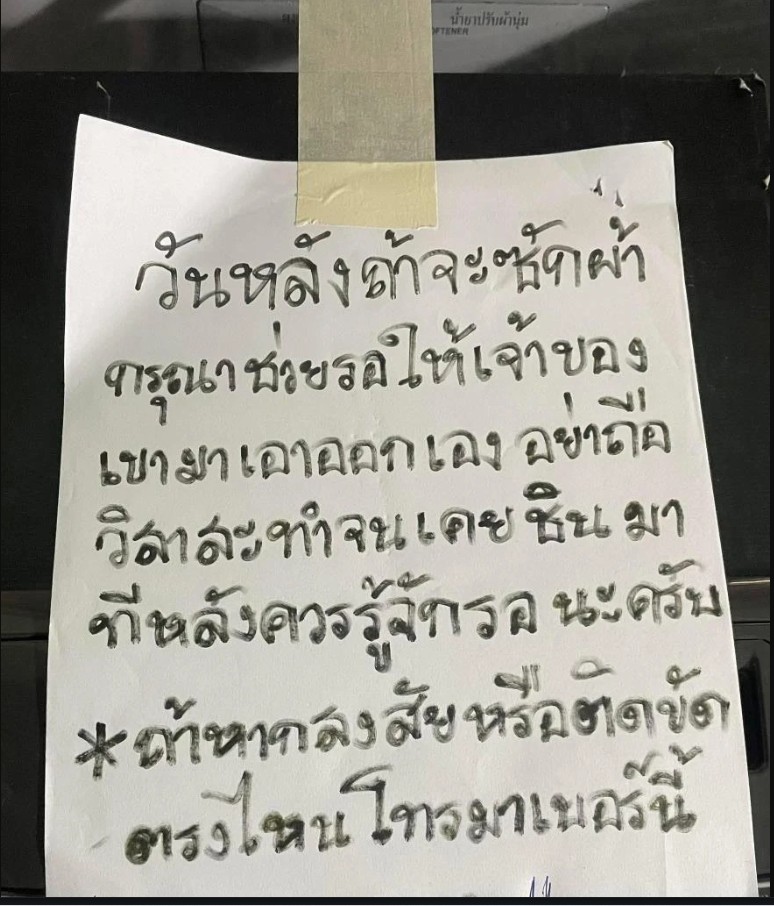 น้ำยาปรับผ้านุ่ม
OFTENER
วันหลังถ้าจะซักผ้า
กรุณาช่วยรอให้เจ้าของ
เขามาเอาออกเอง อย่าถือ
วิสาสะทำจนเคยชิน มา
ทีหลังควรรู้จักรอ นะครับ
*ถ้าหากสงสัยหรือติดขัด
ตรงไหนโทรมาเบอร์นี้